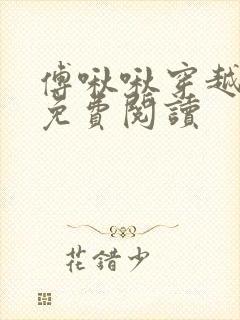 傅啾啾穿越
免費閱讀
花錯少